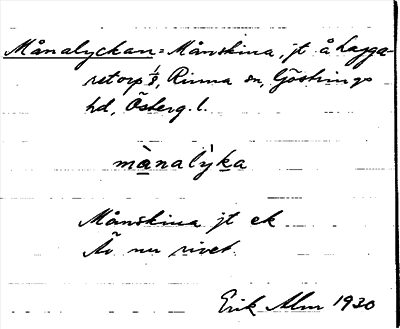 Månalyckan = Månskina, jt å Lagga-
retorp 1/8, Rinna sn, Göstrings
hd, Österg. l.
mànalỳka
Månskina jt ek
Är nu rivet.
Erik Alm 1930